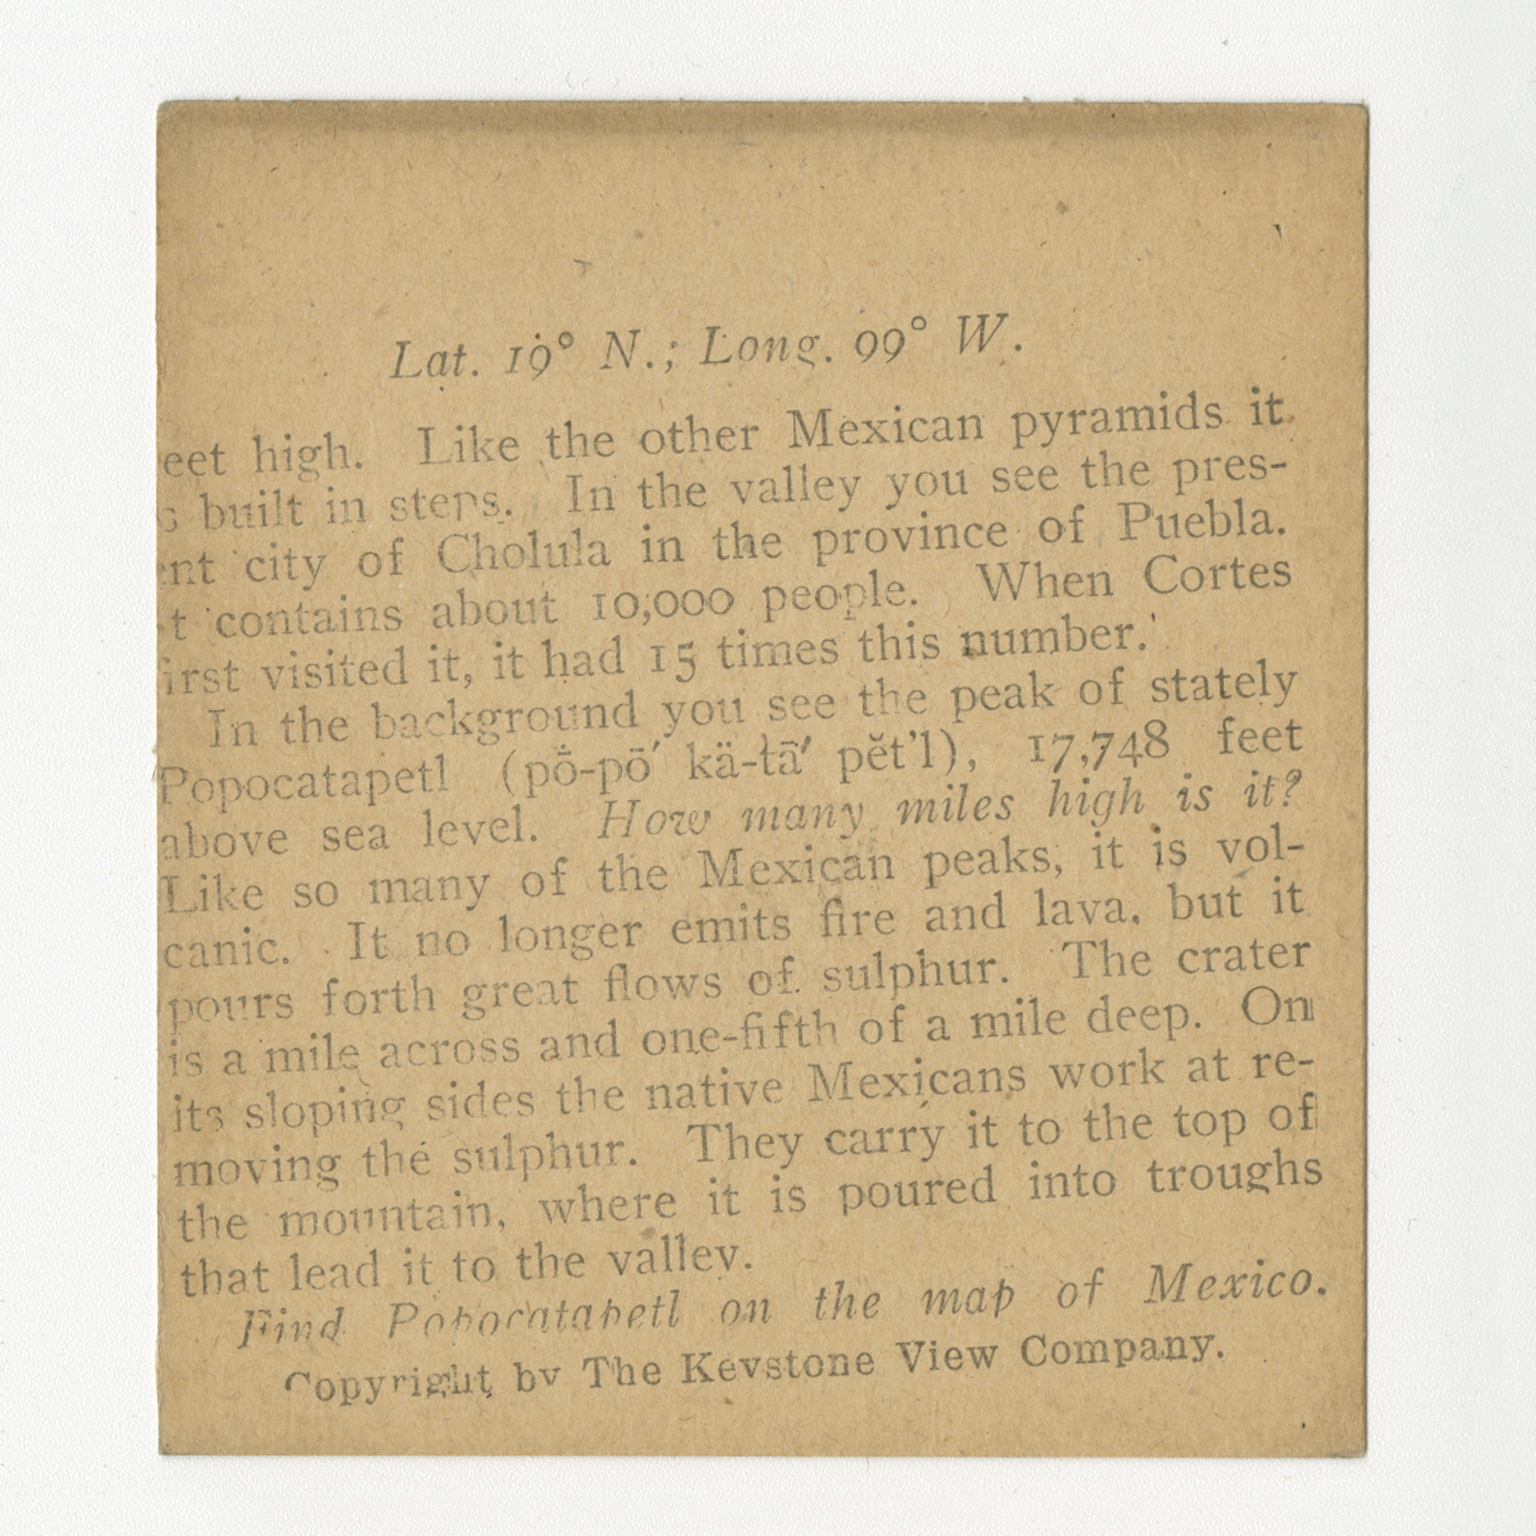 Lat. 19° N.; Long. 99° W.
eet high. Like the other Mexican pyramids it
s built in steps. In the valley you see the pres-
ent city of Cholula in the province of Puebla.
t contains about 10,000 people. When Cortes
irst visited it, it had 15 times this number.
In the background you see the peak of stately
Popocatapetl (pō-pō′ kä-tā′ pĕt'l), 17,748 feet
above sea level. How many miles high is it?
Like so many of the Mexican peaks, it is vol-
canic. It no longer emits fire and lava, but it
pours forth great flows of sulphur. The crater
is a mile across and one-fifth of a mile deep. On
its sloping sides the native Mexicans work at re-
moving the sulphur. They carry it to the top of
the mountain, where it is poured into troughs
that lead it to the valley.
Find Popocatapetl on the map of Mexico.
Copyright by The Keystone View Company.